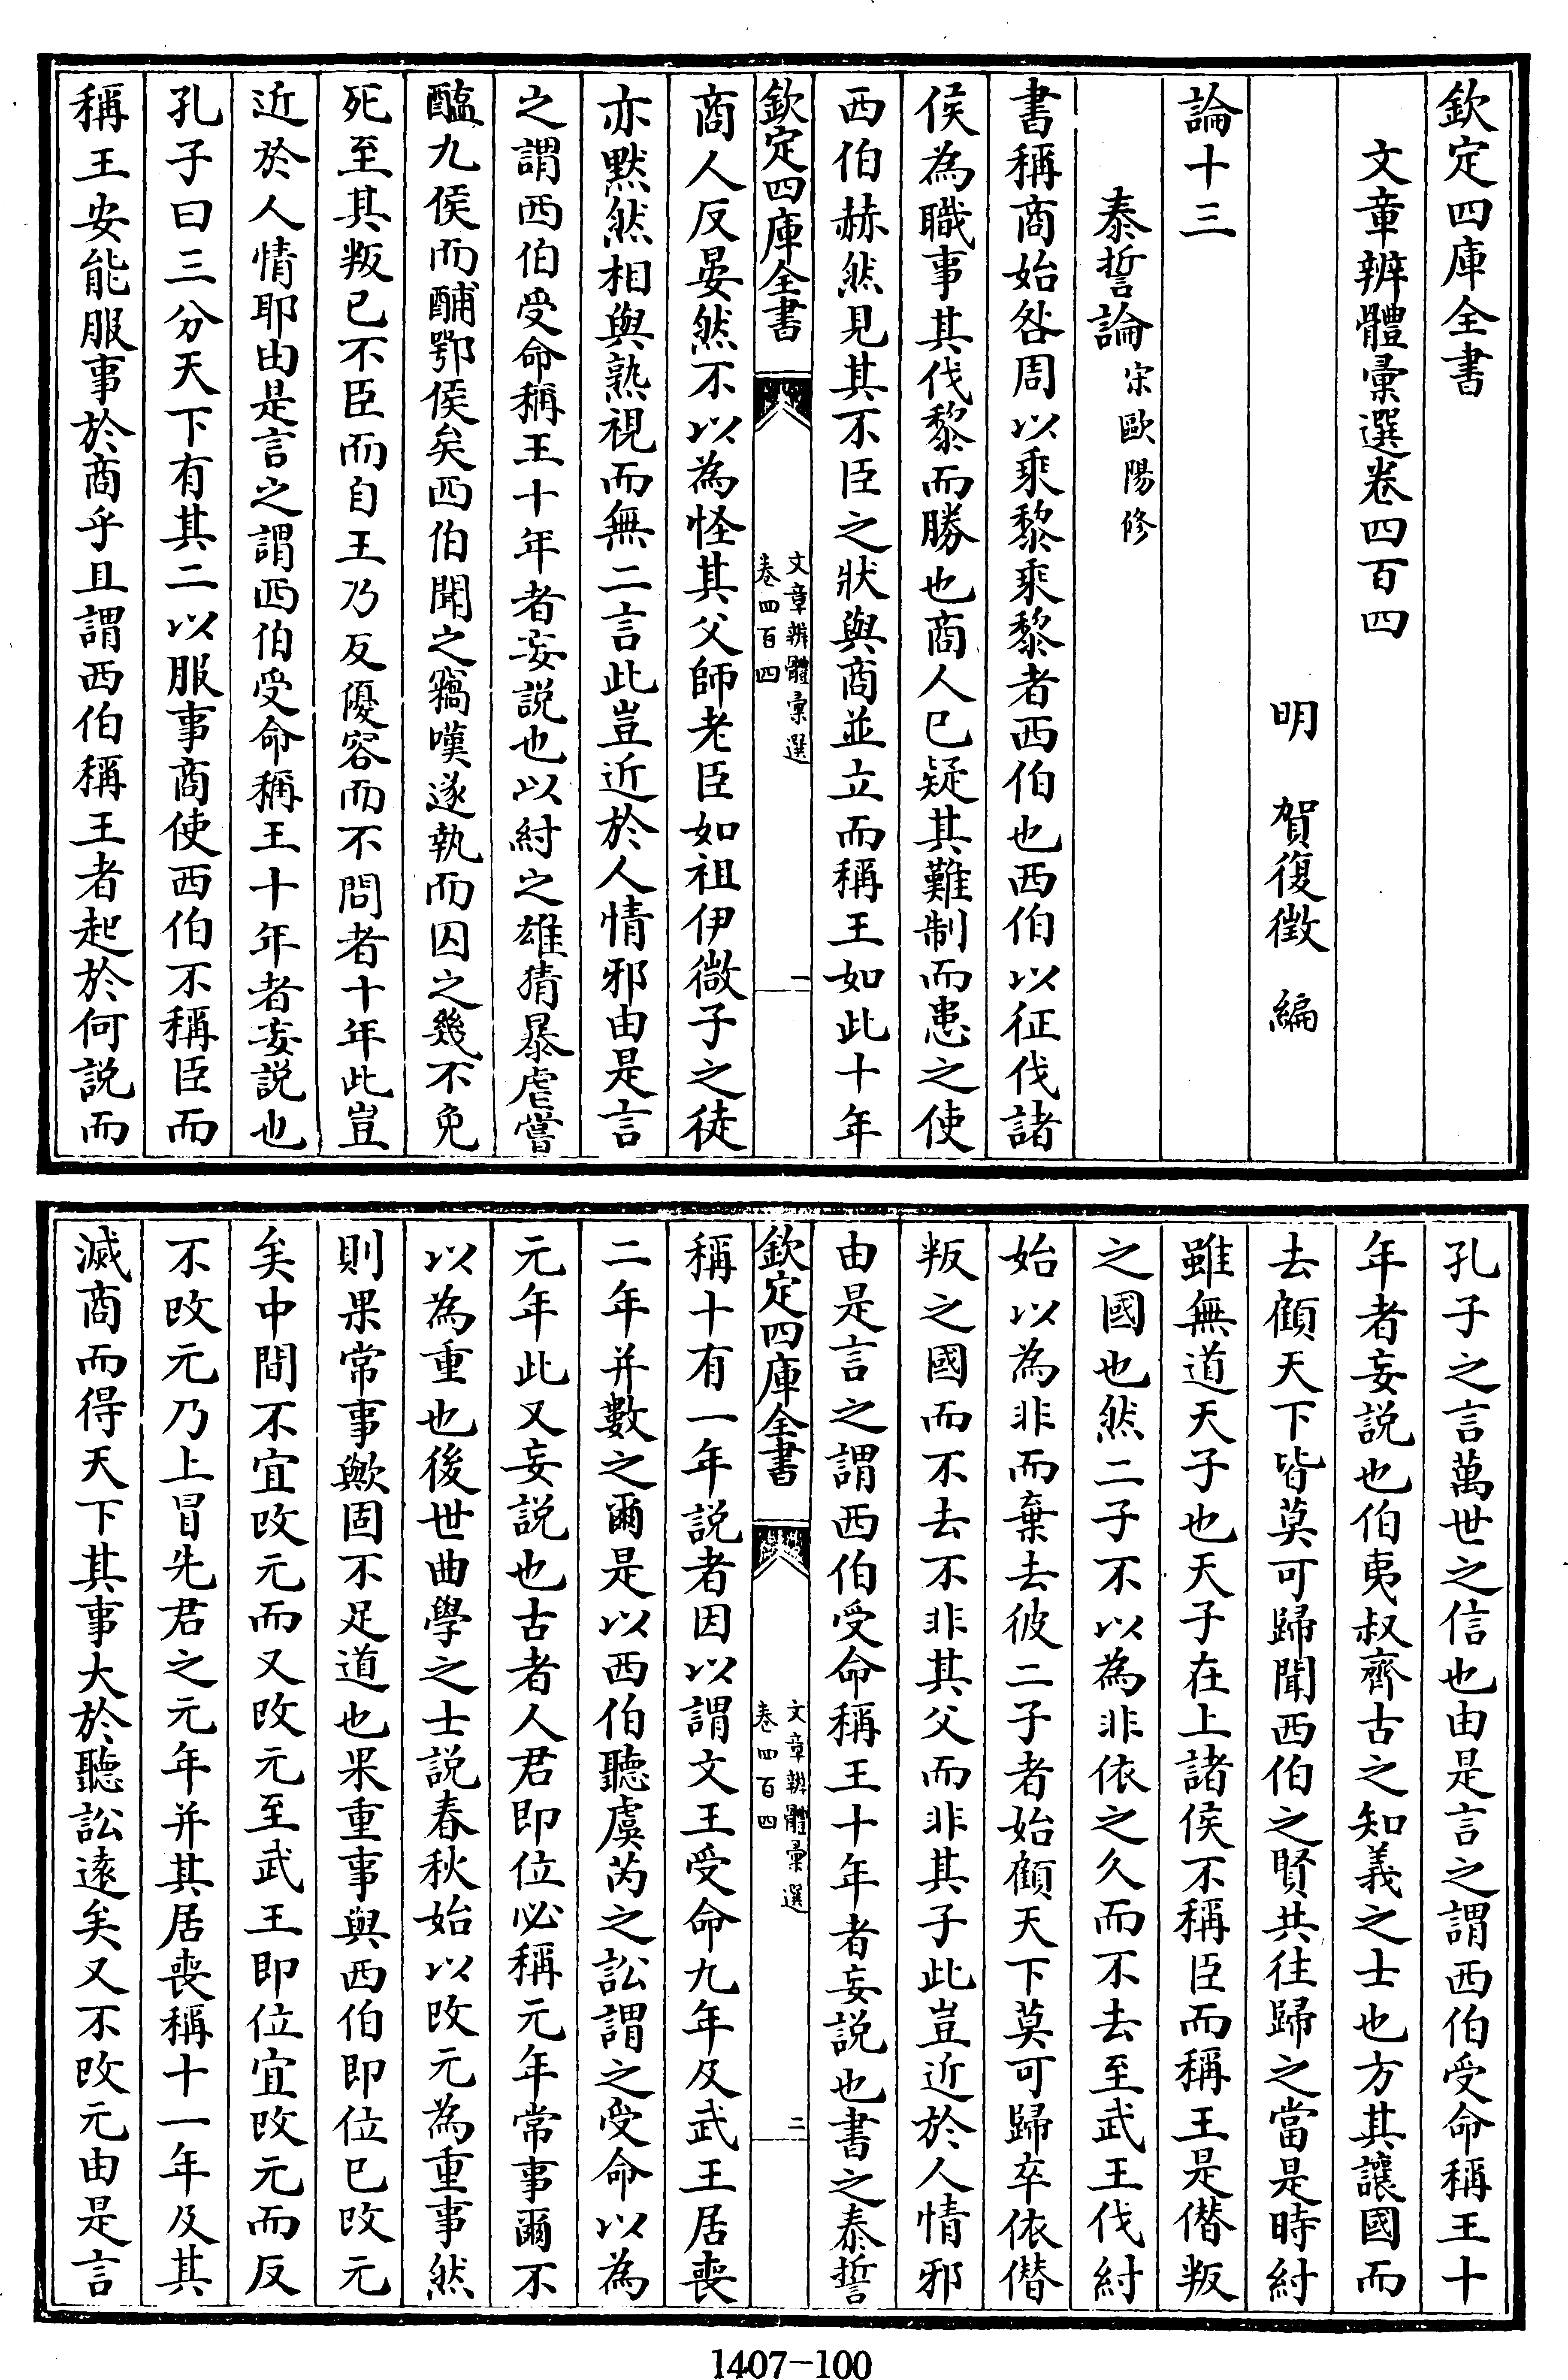 欽定四庫全書
文章辨體彙選卷四百四
明　賀復徵　編
論十三
泰誓論宋歐陽修
書稱商始咎周以乘黎乘黎者西伯也西伯以征伐諸
侯為職事其伐黎而勝也商人已疑其難制而患之使
西伯赫然見其不臣之狀與商並立而稱王如此十年
欽定四庫全書
文章辨體彙選
卷四百四
一
商人反晏然不以為怪其父師老臣如祖伊微子之徒
亦黙然相與熟視而無二言此豈近於人情邪由是言
之謂西伯受命稱王十年者妄説也以紂之雄猜暴虐嘗
醢九侯而脯鄂侯矣西伯聞之竊嘆遂執而囚之幾不免
死至其叛已不臣而自王乃反優容而不問者十年此豈
近於人情耶由是言之謂西伯受命稱王十年者妄説也
孔子曰三分天下有其二以服事商使西伯不稱臣而
稱王安能服事於商乎且謂西伯稱王者起於何説而
孔子之言萬世之信也由是言之謂西伯受命稱王十
年者妄説也伯夷叔齊古之知義之士也方其讓國而
去顧天下皆莫可歸聞西伯之賢共往歸之當是時紂
雖無道天子也天子在上諸侯不稱臣而稱王是僭叛
之國也然二子不以為非依之久而不去至武王伐紂
始以為非而棄去彼二子者始顧天下莫可歸卒依僭
叛之國而不去不非其父而非其子此豈近於人情邪
由是言之謂西伯受命稱王十年者妄説也書之泰誓
欽定四庫全書
文章辨體彙選
卷四百四
二
稱十有一年説者因以謂文王受命九年及武王居喪
二年并數之爾是以西伯聽虞芮之訟謂之受命以為
元年此又妄説也古者人君即位必稱元年常事爾不
以為重也後世曲學之士説春秋始以改元為重事然
則果常事歟固不足道也果重事與西伯即位已改元
矣中間不宜改元而又改元至武王即位宜改元而反
不改元乃上冒先君之元年并其居喪稱十一年及其
滅商而得天下其事大於聽訟逺矣又不改元由是言
1407-100